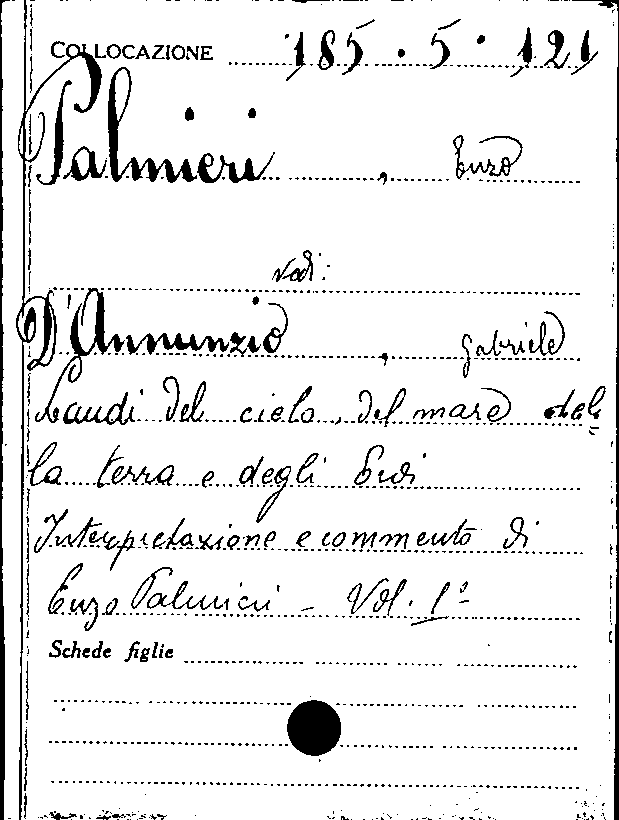 COLLOCAZIONE 185 . 5 . 121
Palmieri , Enzo
vedi:
D'Annunzio , Gabriele
Laudi del cielo, del mare del=
la terra e degli Eroi
Interpretazione e commento di
Enzo Palmieri - Vol. 1º
Schede figlie